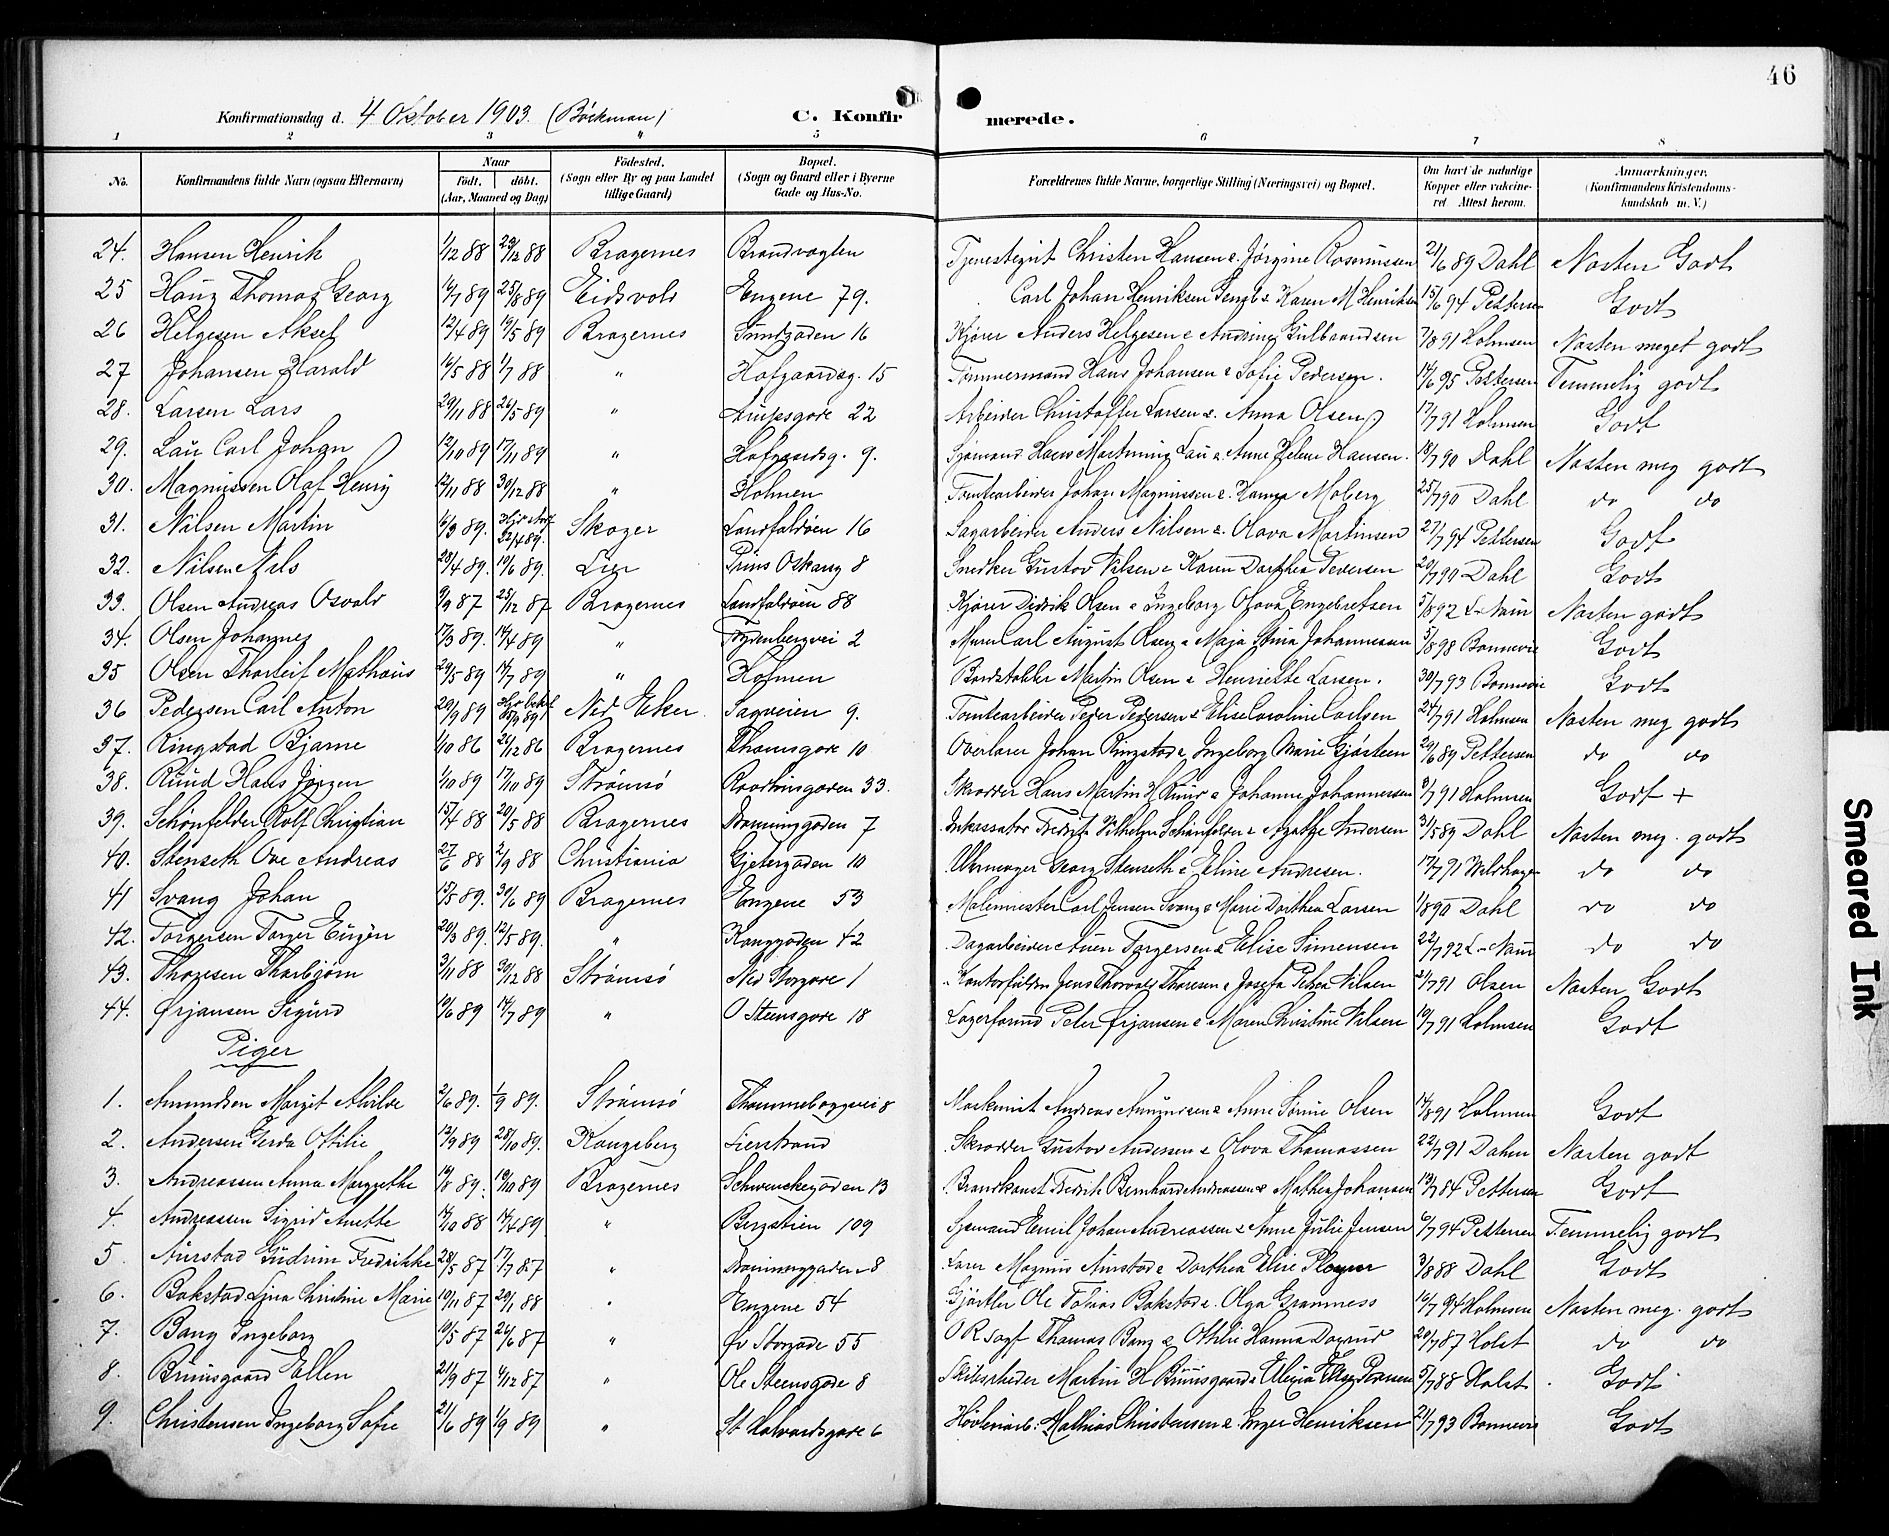 46
Konfirmationsdag d. 4 Oktober 1903. (Böckman) C. Konfirmerede.
1 2 3 " 5 6 7 8
No. Konfirmandens fulde Navn (ogsaa Efternavn) Naar födt. döbt. (Aar, Maaned og Dag) Födested. (Sogn eller By og paa Landet tillige Gaard) Bopæl. (Sogn og Gaard eller i Byerne Gade og Hus-No. Forældrenes fulde Navne, borgerlige Stilling (Næringsvei) og Bopæl. Om havt de naturlige Kopper eller vakcineret Attest herom. Anmærkninger. (Konfirmandens Kristendomskundskab m. V.)
24. Hansen Henrik 1/12 88 29/12 88 Bragernes Brandvagten Tjenestegut Christen Hansen & Jørgine Rasmussen 21/6 89 Dahl Næsten Godt
25 Haug Thomas Georg 16/7 89 25/8 89 Eidsvold Engene 79. Carl Johan Henriksen & Karen M Henriksen 15/6 94 Pettersen Godt
26 Helgesen Aksel 12/4 89 19/5 89 Bragernes Sundgaden 16 Kjører Anders Helgesen & Andrine Gulbrandsen 7/8 91 Holmsen Næsten meget godt
27 Johansen Harald 16/5 88 1/7 88 " Hofgaardsg. 15 Tømmermand Hans Johansen & Sofie Pedersen. 14/6 95 Pettersen Temmelig godt
28. Larsen Lars 29/11 88 26/5 89 " gade 22 Arbeider Christoffer Larsen & Anna Olsen 17/7 91 Holmsen Godt
29. Lau Carl Johan 12/10 89 17/11 89 " Hofgaardsg. 9. Sjømand Hans Martinius Lau & Anne Helene Hansen. 18/7 90 Dahl Næsten meg godt
30. Magnussen Olaf Henry 12/11 88 30/12 88 " Holmen Tomtearbeider Johan Magnussen & Hanna Moberg 25/7 90 Dahl do do
31. Nilsen Martin 6/3 89. 22/4 89. Skoger Landfaldøen 16 Sagarbeider Anders Nilsen & Olava Martinsen 27/7 94 Pettersen Godt
32. Nilsen Nils 28/4 89. 10/6 89. Lier Prins Oskarsg 8 Snedker Gustav Nilsen & Karen Dorthea Pedersen 20/7 90 Dahl Godt
33. Olsen Andreas Osvald 9/9 87 25/12 87 Bragernes Landfaldøen 88 Kjører Didrik Olsen & Ingeborg Olava Engebretsen 5/8 92 Næsten godt
34. Olsen Johannes 17/3 89. 14/4 89 " 2 Murer Carl August Olsen & Maja Stina Johannessen 5/8 98 Bonnevie Godt
35 Olsen Thorleif Mathæus 29/5 89 14/7 89 " Holmen Bordstabler Martin Olsen & Henriette Larsen. 30/7 93 Bonnevie Godt
36 Pedersen Carl Anton 20/9 89 Ned Eker Sagveien 9. Tomtearbeider Peder Pedersen & Elise Caroline Carlsen 24/7 91 Holmsen Næsten meg godt
37. Ringstad Bjarne 1/10 86 26/12 86 Bragernes Thamsgade 10 Overlærer Johan Ringstad & Ingeborg Marie Gjøsteen 29/6 89 Pettersen do do
38. Ruud Hans Jørgen 1/10 89 17/11 89 Strømsø 33. Skrædder Hans Martin H Ruud & Johanne Johannessen 3/7 91 Holmsen Godt +
39. Schønfelder Rolf Christian 15/4 88 20/5 88 Bragernes Dronninggaden 7 Inkassator Fredrik Vilhelm Schønfelder & Agathe Andersen 31/5 89 Dahl Næsten meg. godt
40. Stenseth Ove Andreas 27/6 88 2/9 88 Christiania Gjetergaden 10 Uhrmager Georg Stenseth & Eline Andresen. 17/7 91 Wildhagen do do
41 Svang Johan 15/5 89. 30/6 89 Bragernes Engene 53 Malermester Carl Jensen Svang & Marie Dorthea Larsen 1/8 90 Dahl do do
42. Torgersen Torger Eugen 20/3 89. 12/5 89. " Konggaden 42 Dagarbeider Torgersen & Elise Simensen 22/7 92 do do
43. Thoresen Thorbjørn 3/11 88 30/12 88 Strømsø Ned Storgade 1 Kontorfuldm Jens Thorvald Thoresen & Josefa Petrea Nilsen 21/7 91 Olsen Næsten Godt
44. Ørjansen Sigurd 10/6 89 14/7 89 " O Steensgade 18 Lagerformd Peter Ørjansen & Maren Christine Nilsen 10/7 91 Holmsen Godt
Piger
1. Amundsen Margit Alvilde 2/6 89. 1/9 89. Strømsø 8 Maskinist Andreas Amundsen & Anne Sørine Olsen 14/8 91 Holmsen Godt
2. Andersen Gerda Othilie 12/9 89 28/10 89. Kongsberg Lierstrand Skrædder Gustav Andersen & Olava Thomassen 22/7 91 Dahm Næsten godt
3. Andreassen Anna Margrethe 10/8 89. 10/10 89 Bragernes Schwenckegaden 13 Brandkonst Fredrik Bernhard Andreassen & Mathea Johansen 13/7 84 Pettersen Godt
4. Andreassen Sigrid Anette 17/10 88 14/4 89 " Bergstien 109 Sjømand Emil Johan Andreassen & Anne Julie Jensen 6/7 94 Pettersen Temmelig godt
5. Aurstad Gudrun Fredrikke 28/5 87 17/7 87 " Dronninggaden 8 Lærer Magnus Aurstad & Dorthea Elise 3/8 88 Dahl Godt
6. Bakstad Christine Marie 10/11 87 29/1 88 " Engene 54 Gjørtler Ole Tobias Bakstad & Olga Granness 16/7 94 Holmsen Næsten meg. godt
7. Bang Ingeborg 10/5 87 26/6 87 " Øv Storgade 55 O R sagf Thomas Bang & Othilie Hanna 20/7 87 Holst do do
8. Bruusgaard Ellen 21/9 87 4/12 87 " Ole Steensgade 8 Skibsrheder Martin H Bruusgaard & 5/7 88 Holst Godt
9. Christensen Ingeborg Sofie 21/6 89 1/9 89 " St Halvardsgade 6 Høvleriarb. Mathias Christensen & Inger Henriksen 21/7 93 Bonnevie Godt
Smeared Ink